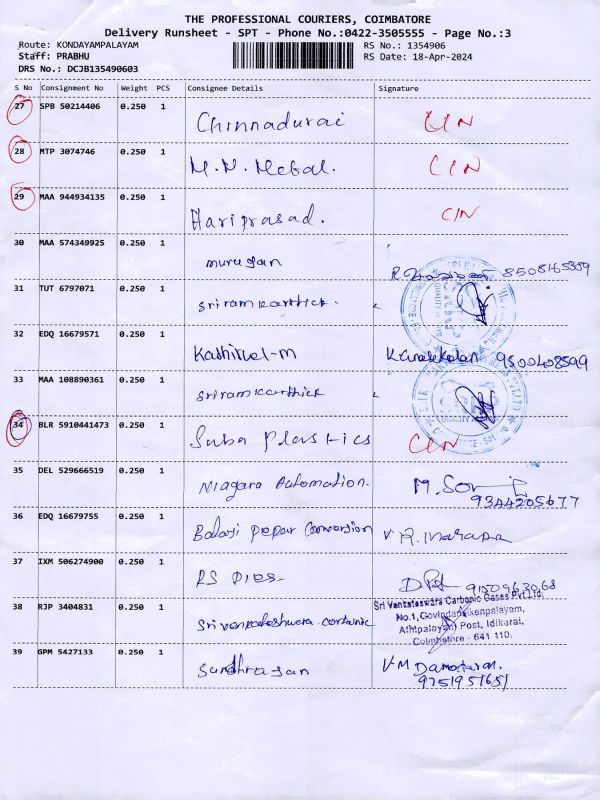 THE PROFESSIONAL COURIERS, COIMBATORE
Delivery Runsheet - SPT - Phone No.:0422-3505555 - Page No.:3
Route: KONDAYAMPALAYAM RS No.: 1354906
Staff: PRABHU RS Date: 18-Apr-2024
DRS No.: DCJB135490603
S No Consignment No Weight PCS Consignee Details Signature
27 SPB 50214406 0.250 1 Chinnadurai CIN
28 MTP 3074746 0.250 1 M.N. CIN
29 MAA 944934135 0.250 1 Hariprasad. CIN
30 MAA 574349925 0.250 1 murugan 8508165309
31 TUT 6797071 0.250 1 sriramkarthick.
32 EDQ 16679571 0.250 1 Kathirvel-m 9500408599
33 MAA 108890361 0.250 1 sriramkarthick
34 BLR 5910441473 0.250 1 Suba Plastics CIN
35 DEL 529666519 0.250 1 Niagara Automation. M.
9344205677
36 EDQ 16679755 0.250 1 Balaji paper conversion V.R.
37 IXM 506274900 0.250 1 RS
38 RJP 3404831 0.250 1 Srivenkateshwara carbonic
Sri Venkateswara Carbonic Gases Pvt Ltd.
No.1, Govindanaikenpalayam,
Athipalayam Post, Idikarai,
Coimbatore - 641 110.
39 GPM 5427133 0.250 1 V.M Damodaran.
9751951651